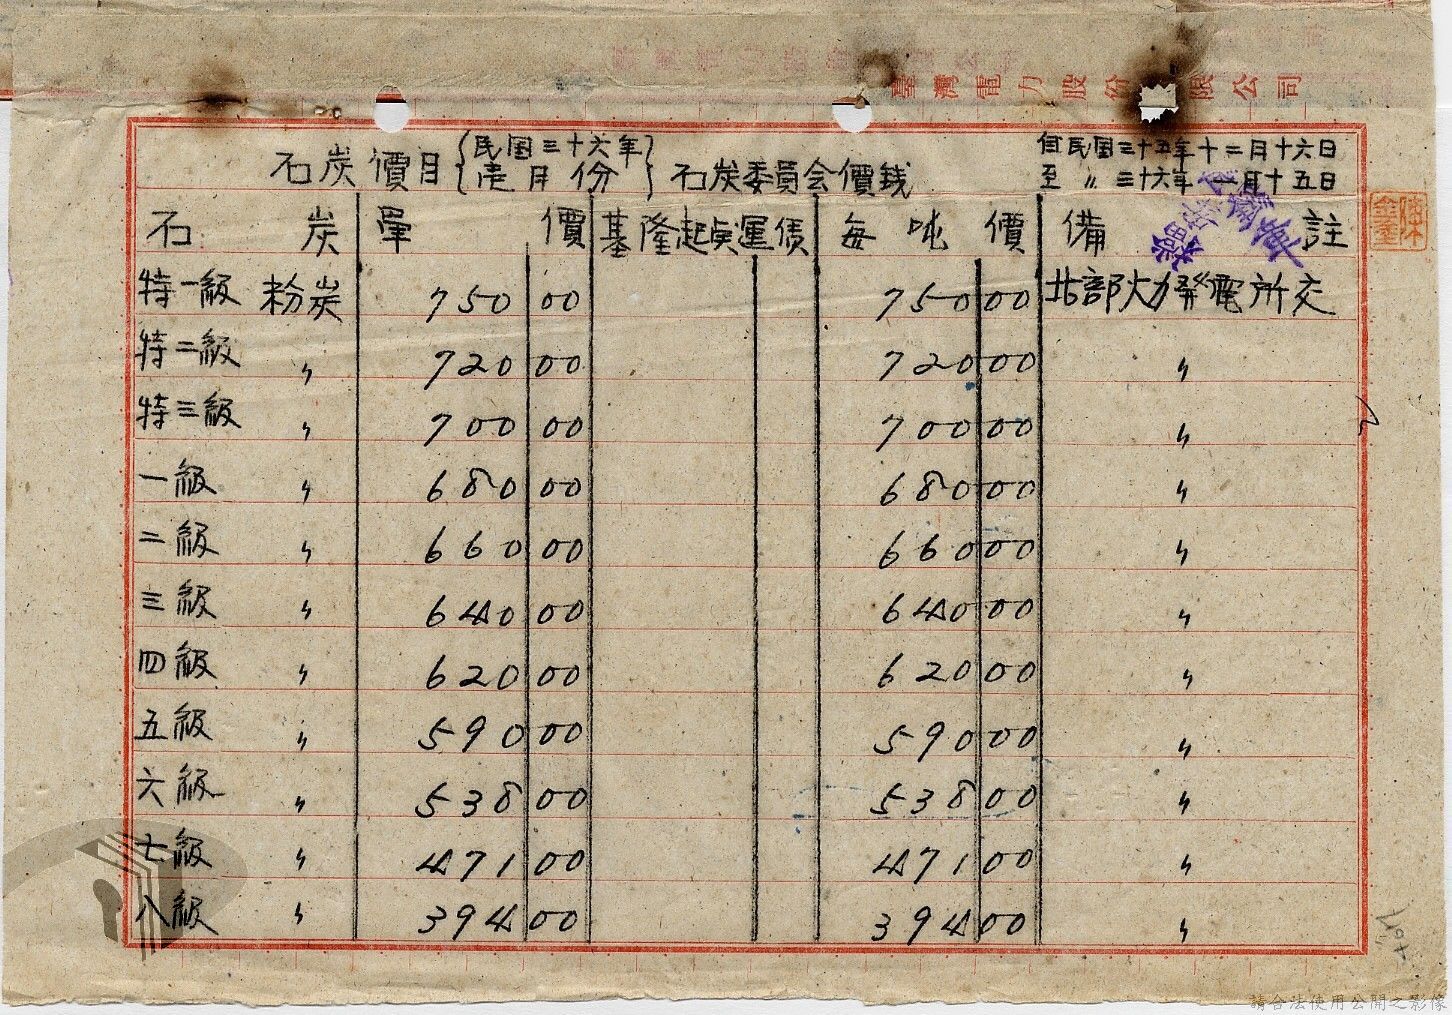 臺灣電力股份有限公司
石炭價目{民国三十六年壱月份}石炭委員会價錢 自民国三十五年十二月十六日
至〃三十六年一月十五日
石炭 單價 基隆起点運賃 每吨價 備註
特一級 粉炭 750 00 750 00 北部火力発電所交
特二級 〃 720 00 720 00 〃
特三級 〃 700 00 700 00 〃
一級 〃 680 00 680 00 〃
二級 〃 660 00 660 00 〃
三級 〃 640 00 640 00 〃
四級 〃 620 00 620 00 〃
五級 〃 590 00 590 00 〃
六級 〃 538 00 538 00 〃
七級 〃 471 00 471 00 〃
八級 〃 394 00 394 00 〃
請合法使用公開之影像